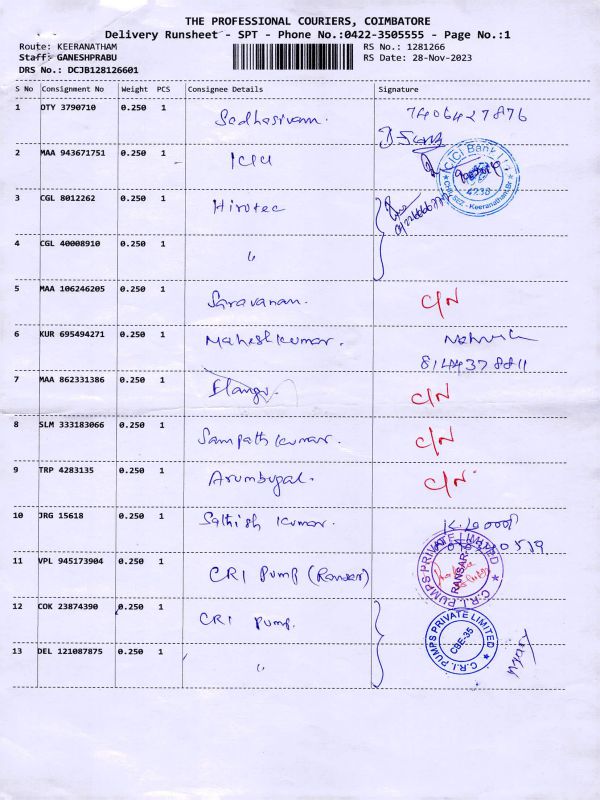 THE PROFESSIONAL COURIERS, COIMBATORE
Delivery Runsheet - SPT - Phone No.:0422-3505555 - Page No.:1
Route: KEERANATHAM RS No.: 1281266
Staff: GANESHPRABU RS Date: 28-Nov-2023
DRS No.: DCJB128126601
S No Consignment No Weight PCS Consignee Details Signature
1 OTY 3790710 0.250 1 Sadhasivam. 7406427876
2 MAA 943671751 0.250 1 ICICI ICICI Bank
4238
Keeranatham Br
3 CGL 8012262 0.250 1 Hirotec
4 CGL 40008910 0.250 1 "
5 MAA 106246205 0.250 1 Saravanan. C/N
6 KUR 695494271 0.250 1 Maheshkumar.
8144378811
7 MAA 862331386 0.250 1 Elango. C/N
8 SLM 333183066 0.250 1 Sampath Kumar. C/N
9 TRP 4283135 0.250 1 Arumbugal. C/N
10 JRG 15618 0.250 1 Sathish Kumar.
11 VPL 945173904 0.250 1 CRI Pump (Ransar) C.R.I. PUMPS PRIVATE LIMITED
RANSAR
12 COK 23874390 0.250 1 CRI Pump. C.R.I. PUMPS PRIVATE LIMITED
CBE-35
13 DEL 121087875 0.250 1 "